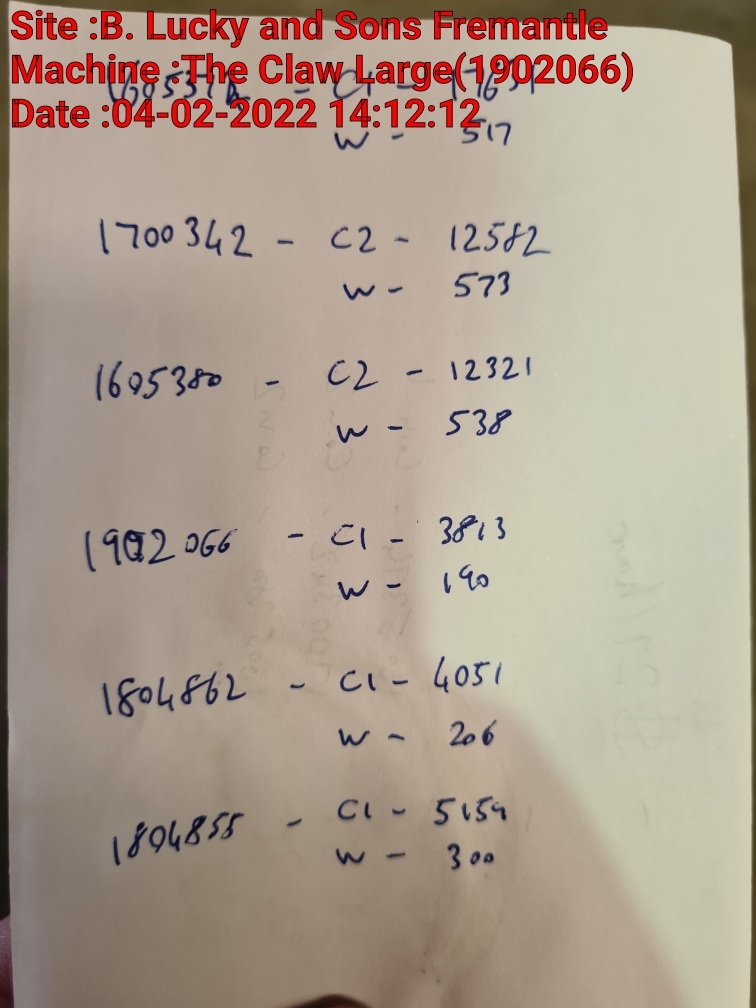 Site :B. Lucky and Sons Fremantle
Machine :The Claw Large(1902066)
Date :04-02-2022 14:12:12
- C1 -
W - 517
1700342 - C2 - 12582
W - 573
1605380 - C2 - 12321
W - 538
1902066 - C1 - 3813
W - 190
1804862 - C1 - 4051
W - 206
1804855 - C1 - 5159
W - 300